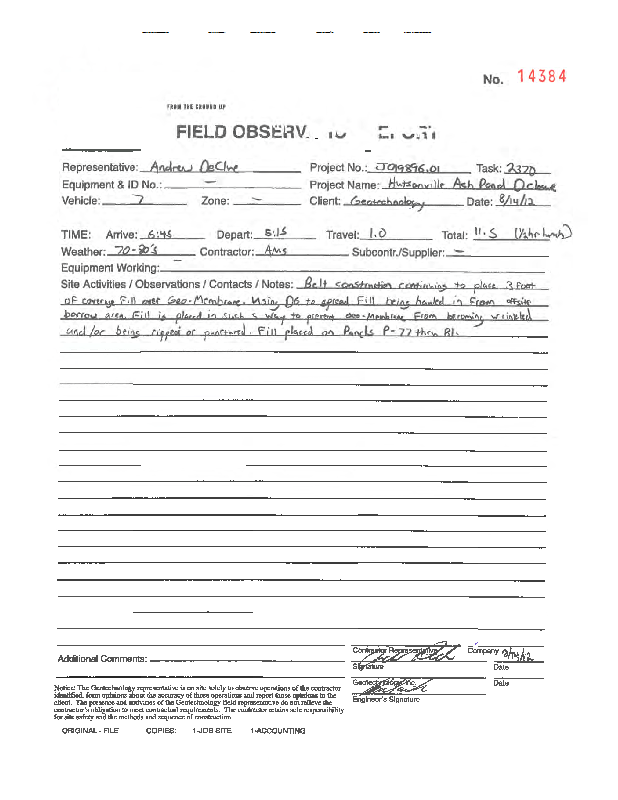 No. 14384
FROM THE GROUND UP
FIELD OBSERV
Representative: Andrew DeClue Project No.: J019896.01 Task: 2370
Equipment & ID No.: — Project Name: Hutsonville Ash Pond Closure
Vehicle: 7 Zone: — Client: Geotechnology Date: 8/14/12
TIME: Arrive: 6:45 Depart: 5:15 Travel: 1.0 Total: 11.5 (1/2 hr lunch)
Weather: 70-80's Contractor: AMS Subcontr./Supplier: —
Equipment Working: —
Site Activities / Observations / Contacts / Notes: Belt construction continuing to place 3 foot
of coverage Fill over Geo-Membrane. Using D6 to spread Fill being hauled in From offsite
borrow area. Fill is placed in such a way to prevent Geo-Membrane From becoming wrinkled
and/or being ripped or punctured. Fill placed on Panels P-77 thru 81.
Additional Comments:
Contractor Representative Company
Signature Date
Geotechnology, Inc. Date
Engineer's Signature
Notice: The Geotechnology representative is on site solely to observe operations of the contractor
identified, form opinions about the accuracy of those operations and report those opinions to the
client. The presence and activities of the Geotechnology field representative do not relieve the
contractor's obligation to meet contractual requirements. The contractor retains sole responsibility
for site safety and the methods and sequence of construction.
ORIGINAL - FILE COPIES: 1-JOB SITE 1-ACCOUNTING